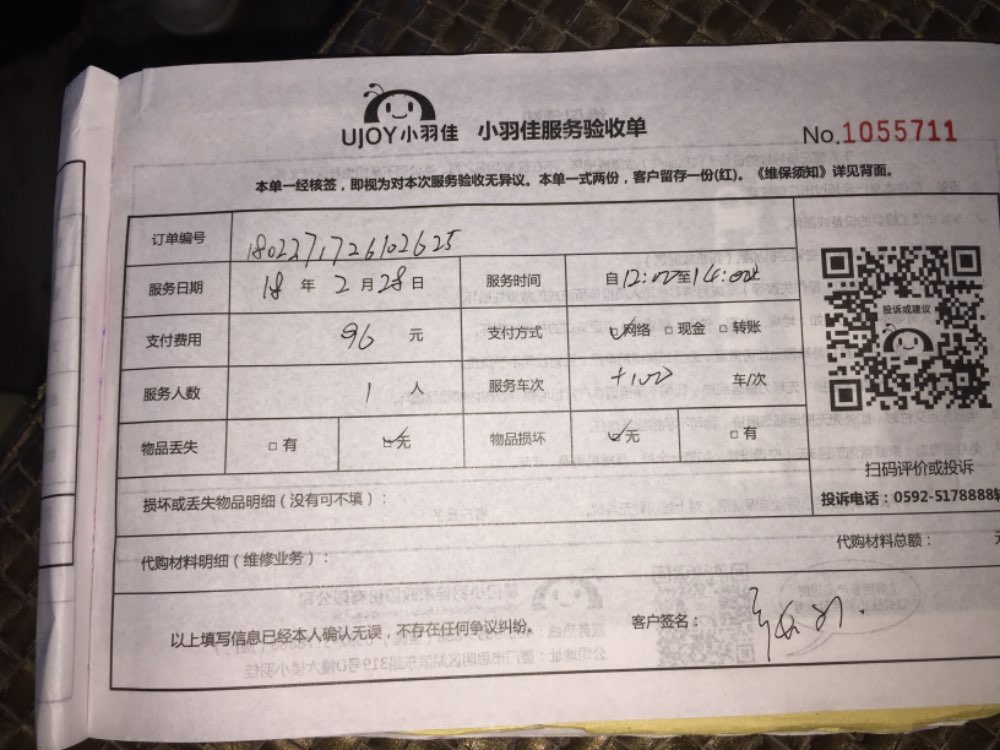 UJOY小羽佳 小羽佳服务验收单
No.1055711
本单一经核签，即视为对本次服务验收无异议。本单一式两份，客户留存一份(红)。《维保须知》详见背面。
订单编号 1802271726102625
服务日期 18 年 2 月 28 日 服务时间 自12:00至14:00止
支付费用 96 元 支付方式 ☑网络 □现金 □转账
服务人数 1 人 服务车次 车/次
物品丢失 □有 ☑无 物品损坏 ☑无 □有
投诉或建议
扫码评价或投诉
投诉电话：0592-5178888转
损坏或丢失物品明细（没有可不填）：
代购材料明细（维修业务）： 代购材料总额：
以上填写信息已经本人确认无误，不存在任何争议纠纷。 客户签名：